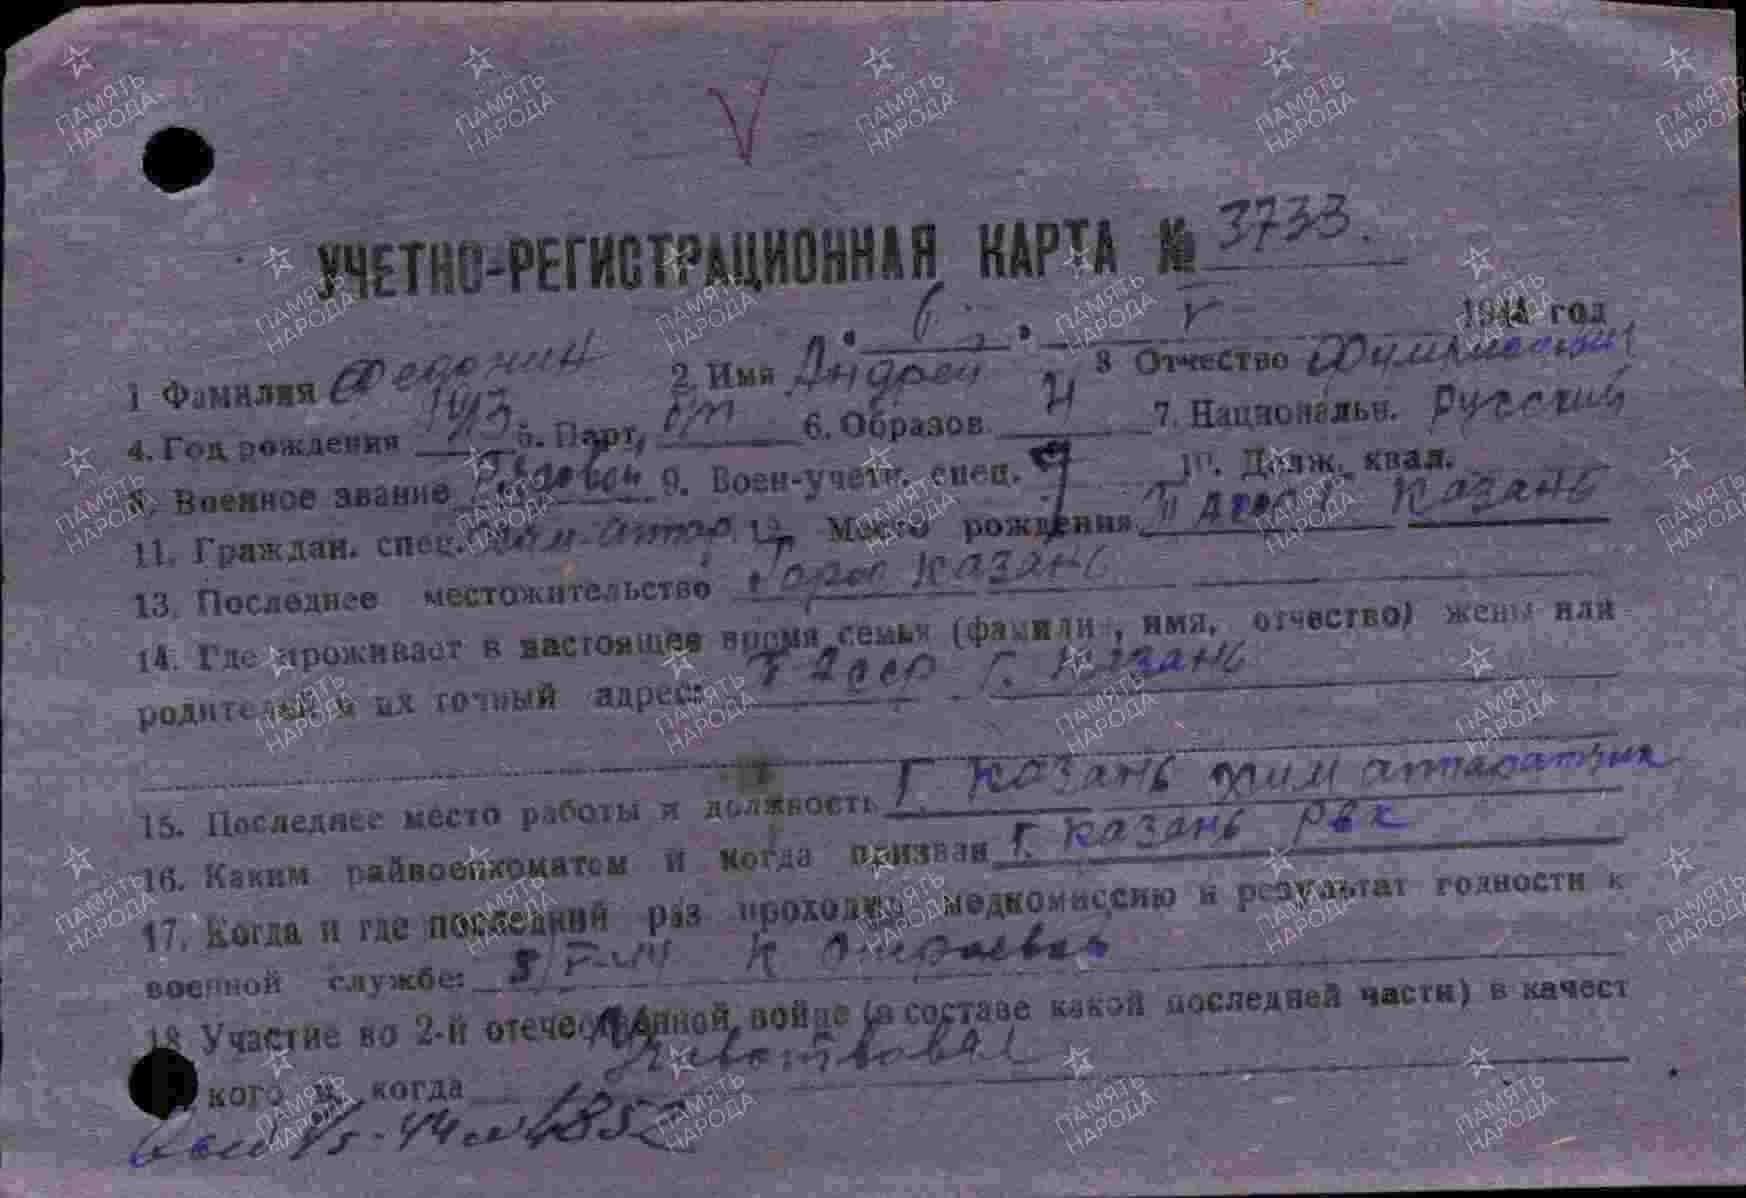 УЧЕТНО-РЕГИСТРАЦИОННАЯ КАРТА № 3733.
" 6 " V 1944 год
1 Фамилия Федонин 2. Имя Андрей 3 Отчество
4. Год рождения 1913 5. Парт, б/п 6. Образов. 4 7. Национальн. Русский
8. Военное звание Рядовой 9. Воен-учетн. спец. 10. Долж. квал.
11. Граждан. спец. 12. Место рождения Казань
13. Последнее местожительство город Казань
14. Где проживает в настоящее время семья (фамилия, имя, отчество) жены или
родителей и их точный адрес: ТАССР г. Казань
15. Последнее место работы и должность г. Казань хим аппаратчик
16. Каким райвоенкоматом и когда призван г. Казань РВК
17. Когда и где последний раз проходил медкомиссию и результат годности к
военной службе: 5/V-44 к
18 Участие во 2-й отечественной войне (в составе какой последней части) в качест
кого и когда Участвовал
ПАМЯТЬ НАРОДА